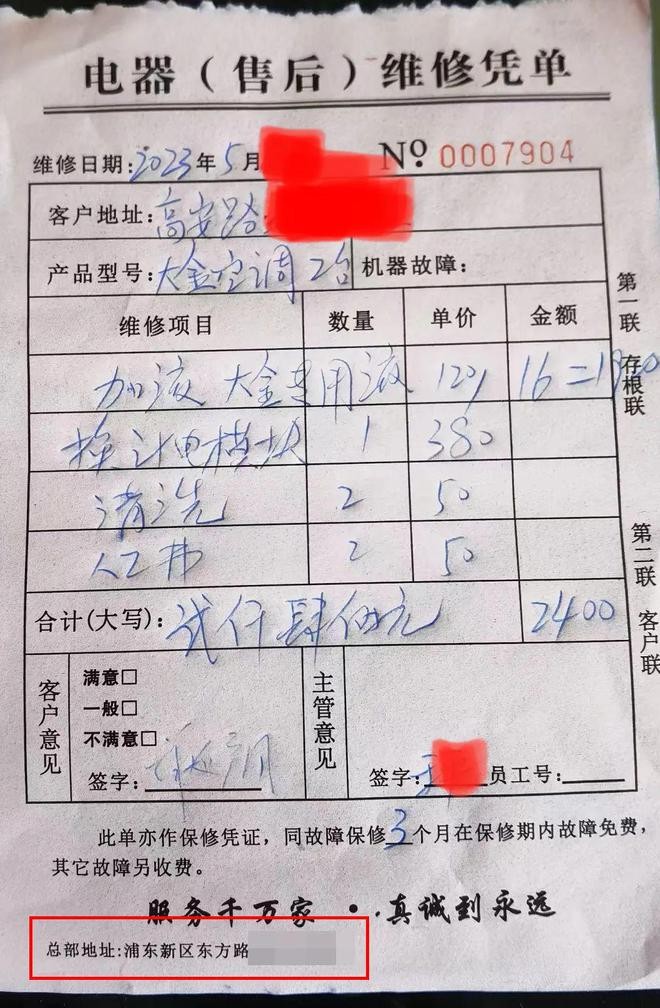 电器（售后）维修凭单
维修日期:2023年5月 No 0007904
客户地址:高安路
产品型号:大金空调 2台 机器故障:
维修项目 数量 单价 金额
加液 大金专用液 120 16=1920
换计电模块 1 380
清洗 2 50
人工费 2 50
合计(大写): 贰仟肆佰元 2400
客户意见
满意□
一般□
不满意□
签字:
主管意见
签字: 员工号:
第一联 存根联
第二联 客户联
此单亦作保修凭证，同故障保修3个月在保修期内故障免费，
其它故障另收费。
服务千万家 · · 真诚到永远
总部地址:浦东新区东方路